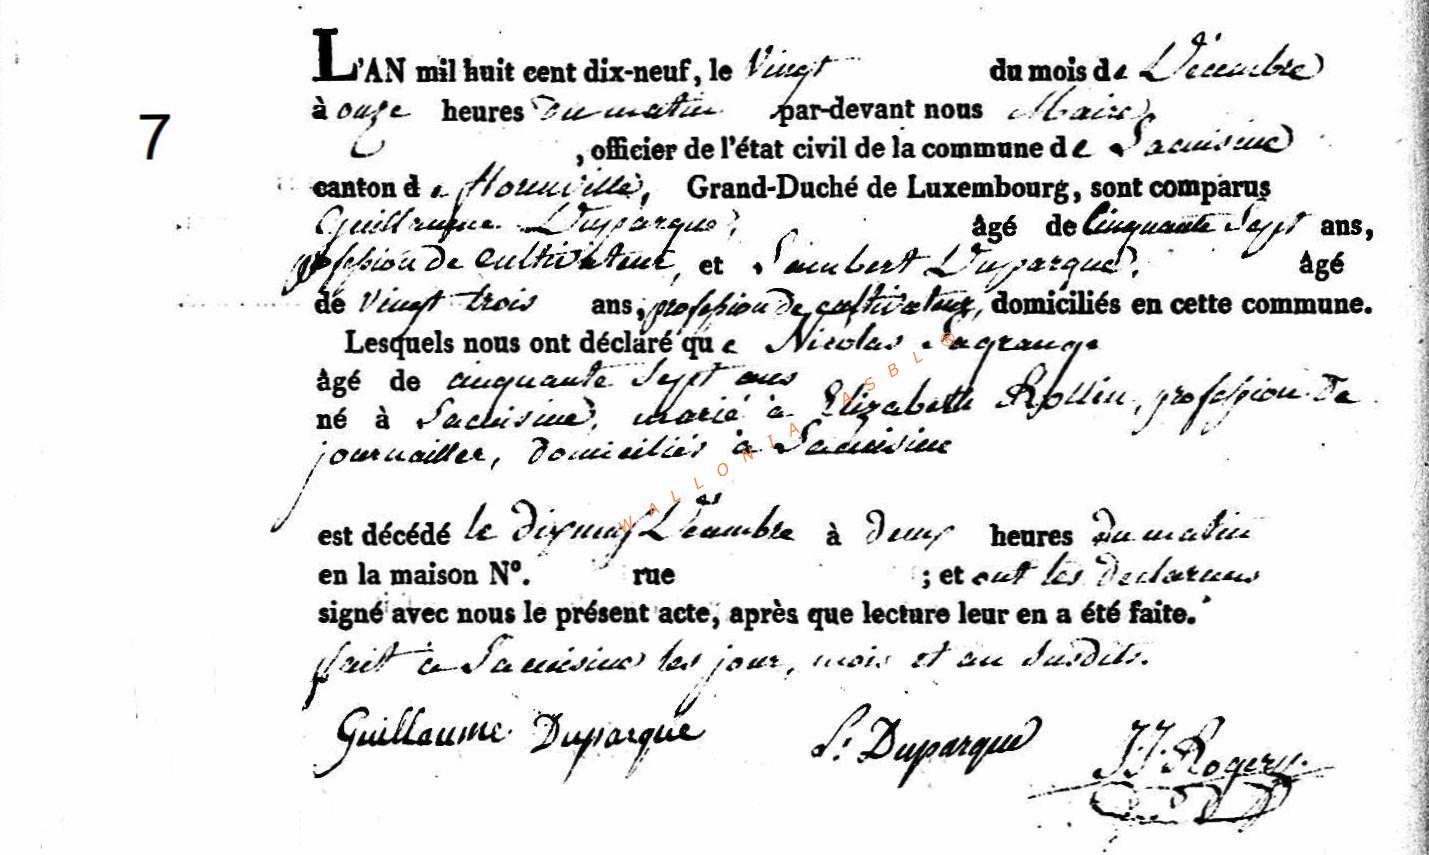 L'AN mil huit cent dix-neuf, le Vingt du mois de Décembre
7
à onze heures du matin par-devant nous Maire
, officier de l'état civil de la commune de Lacuisine
canton de florenville, Grand-Duché de Luxembourg, sont comparus
Guillaume Duparque, âgé de Cinquante Sept ans,
profession de cultivateur, et Lambert Duparque, âgé
de vingt trois ans, profession de cultivateur, domiciliés en cette commune.
Lesquels nous ont déclaré que Nicolas Lagrange
âgé de cinquante sept ans
né à Lacuisine, marié à Elizabeth Rollin, profession de
journailler, domiciliés à Lacuisine
WALLONIA ASBL
est décédé le dixneuf Décembre à deux heures du matin
en la maison N°. rue ; et ont les declarans
signé avec nous le présent acte, après que lecture leur en a été faite.
fait à Lacuisine les jour, mois et an susdits.
Guillaume Duparque L. Duparque J. J. Rogery